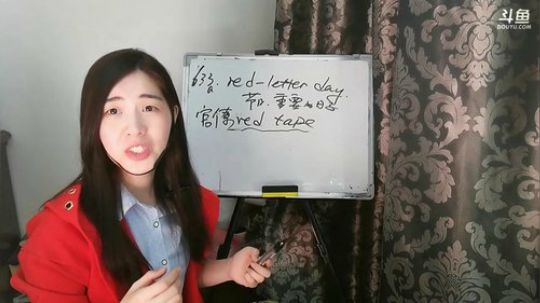 斗鱼
DOUYU.COM
633. red-letter day.
节日.重要的日子
官僚red tape